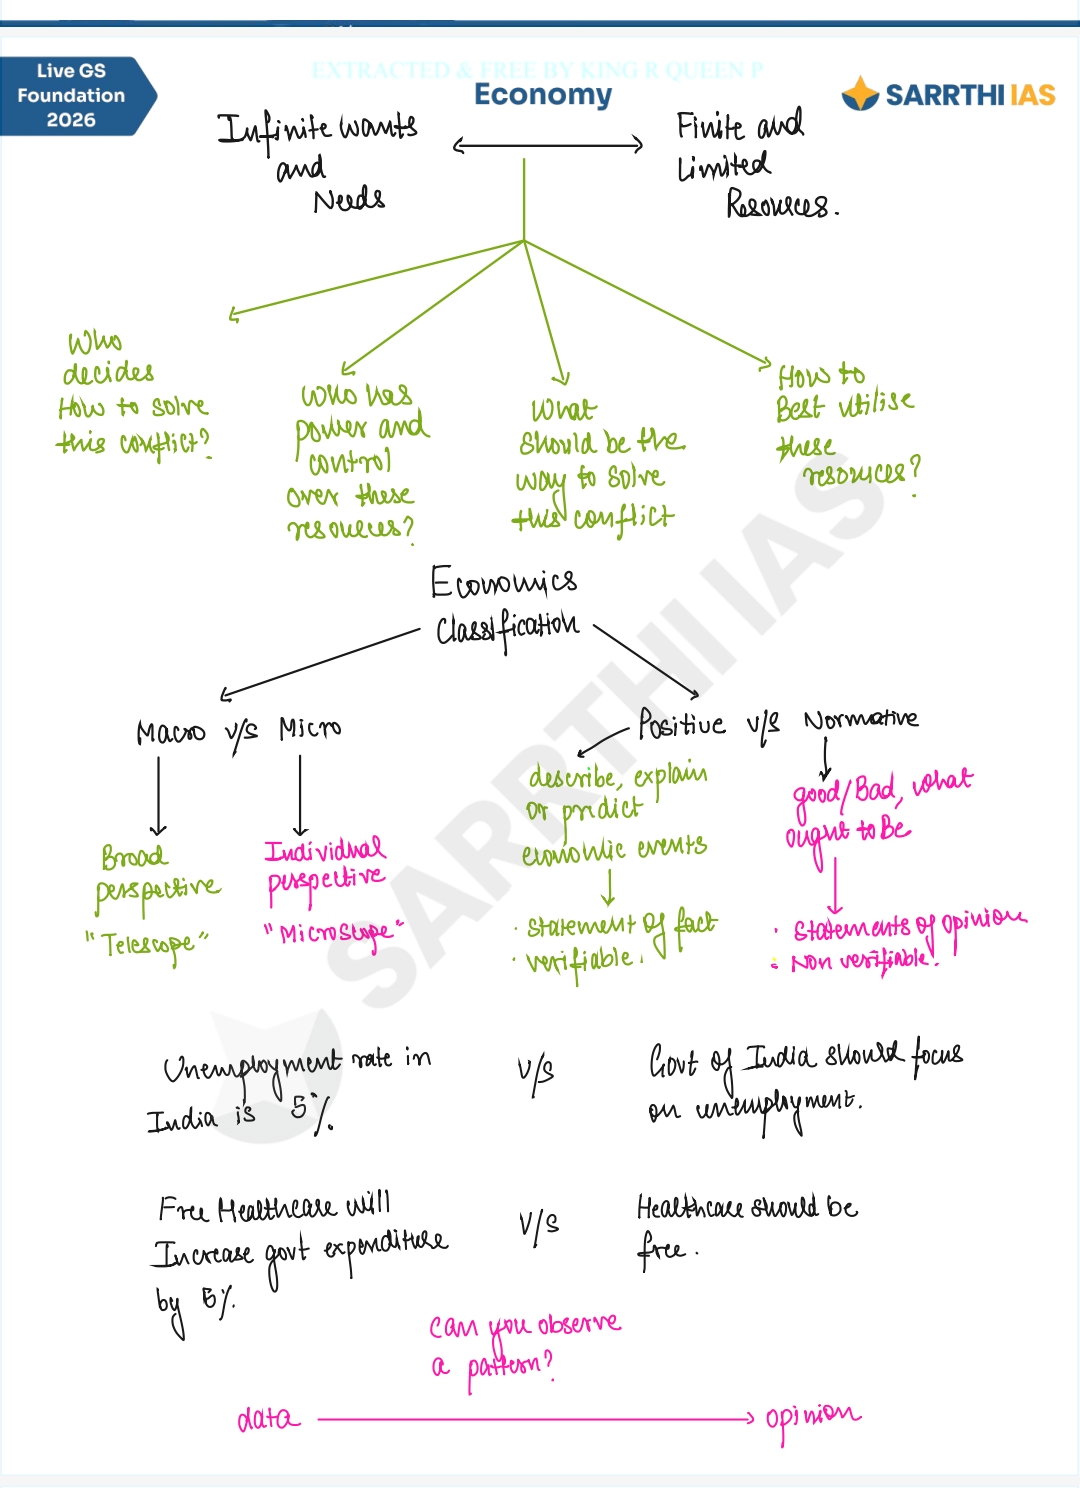 Live GS
Foundation
2026
EXTRACTED & FREE BY KING R QUEEN P
Economy
SARRTHI IAS
Infinite wants
and
Needs
Finite and
Limited
Resources.
Who
decides
How to solve
this conflict?
Who has
power and
control
over these
resources?
What
should be the
way to solve
this conflict
How to
Best utilise
these
resources?
Economics
Classification
Macro v/s Micro
Positive v/s Normative
Broad
perspective
"Telescope"
Individual
perspective
"Microscope"
describe, explain
or predict
economic events
· Statement of fact
· verifiable.
good/Bad, what
ought to Be
· Statements of opinion
· Non verifiable.
SARRTHI IAS
Unemployment rate in
India is 5%.
v/s
Govt of India should focus
on unemployment.
Free Healthcare will
Increase govt expenditure
by 5%.
v/s
Healthcare should be
free.
Can you observe
a pattern?
data
opinion